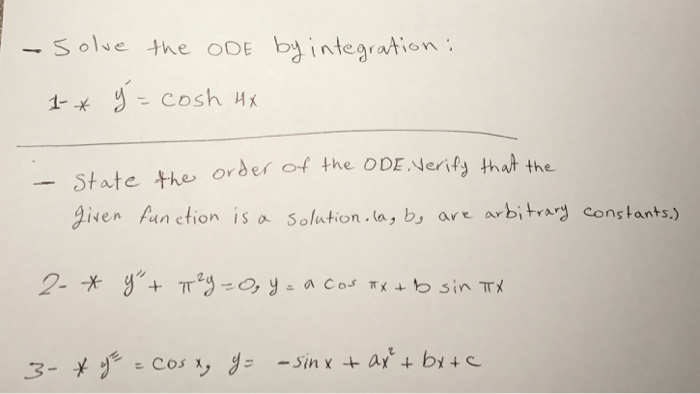 - Solve the ODE by integration:
1-* y' = cosh 4x
- State the order of the ODE. Verify that the
given function is a solution. (a, b, are arbitrary constants.)
2- * y" + π²y=0, y = a cos πx + b sin πx
3- * y''' = cos x, y = - sin x + ax² + bx + c